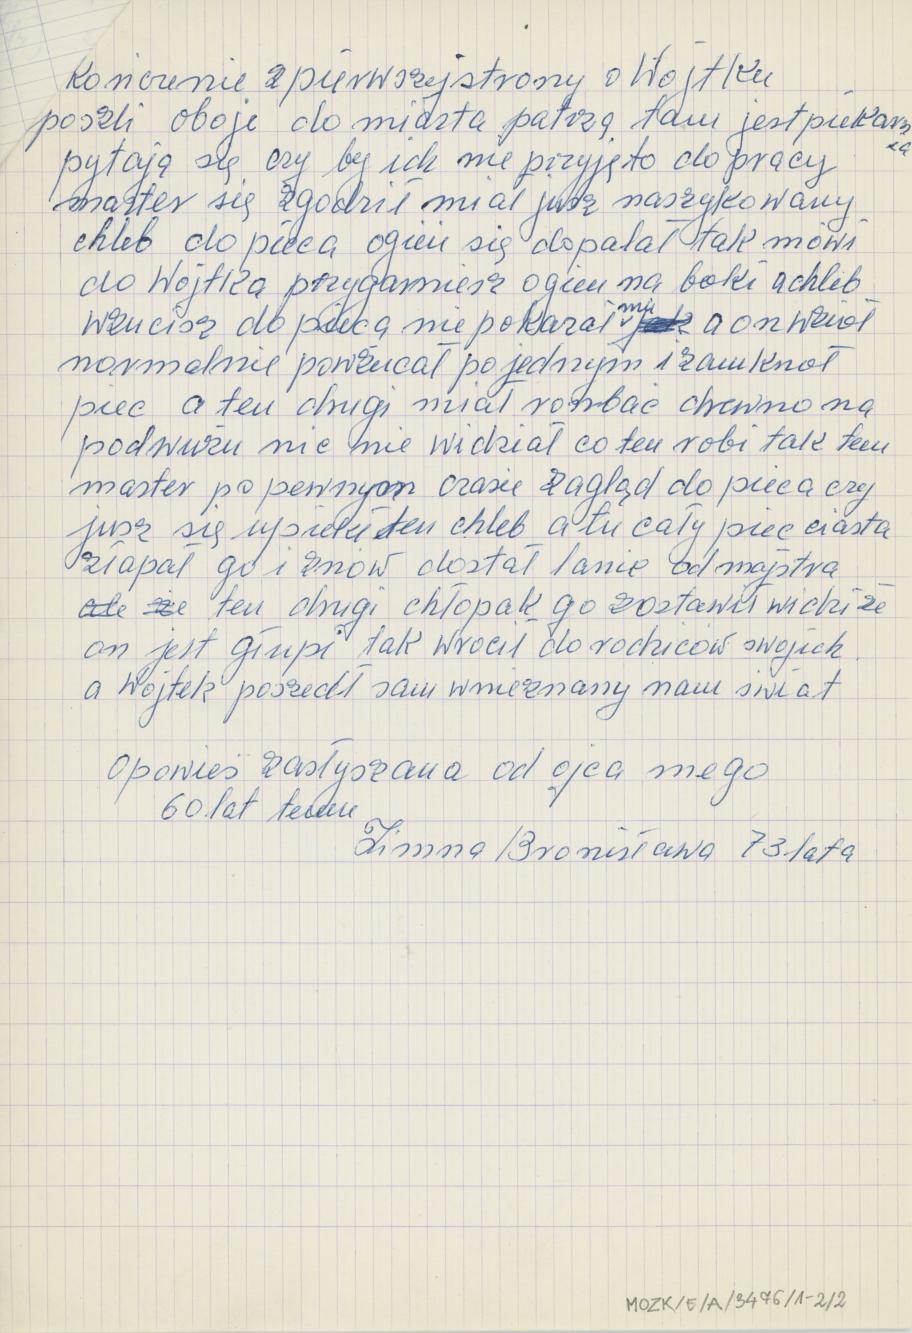 Kończenie z pierwszej strony o Wojtku
poszli oboje do miasta patrzą tam jest piekarn
ia
pytają się czy by ich nie przyjęto do pracy
master się zgodził miał jusz naszykowany
chleb do pieca ogień się dopalał tak mówi
do Wójtka przygarniesz ogień na boki a chleb
wzucisz do pieca nie pokazał mu a on wzioł
normalnie powzucał po jednym i zamknoł
piec a ten drugi miał rombać drewno na
podwużu nic nie widział co ten robi tak ten
master po pewnym czasie zagląd do pieca czy
jusz się upiekł ten chleb a tu cały piec ciasta
złapał go i znów dostał lanie od majstra
ale że ten drugi chłopak go zostawił widzi że
on jest głupi tak wrócił do rodziców swojich
a Wojtek poszedł sam wnieznany nam świat
Opowieś zasłyszana od ojca mego
60 lat temu
Zimna Bronisława 73 lata
MOZK/E/A/3476/1-2/2